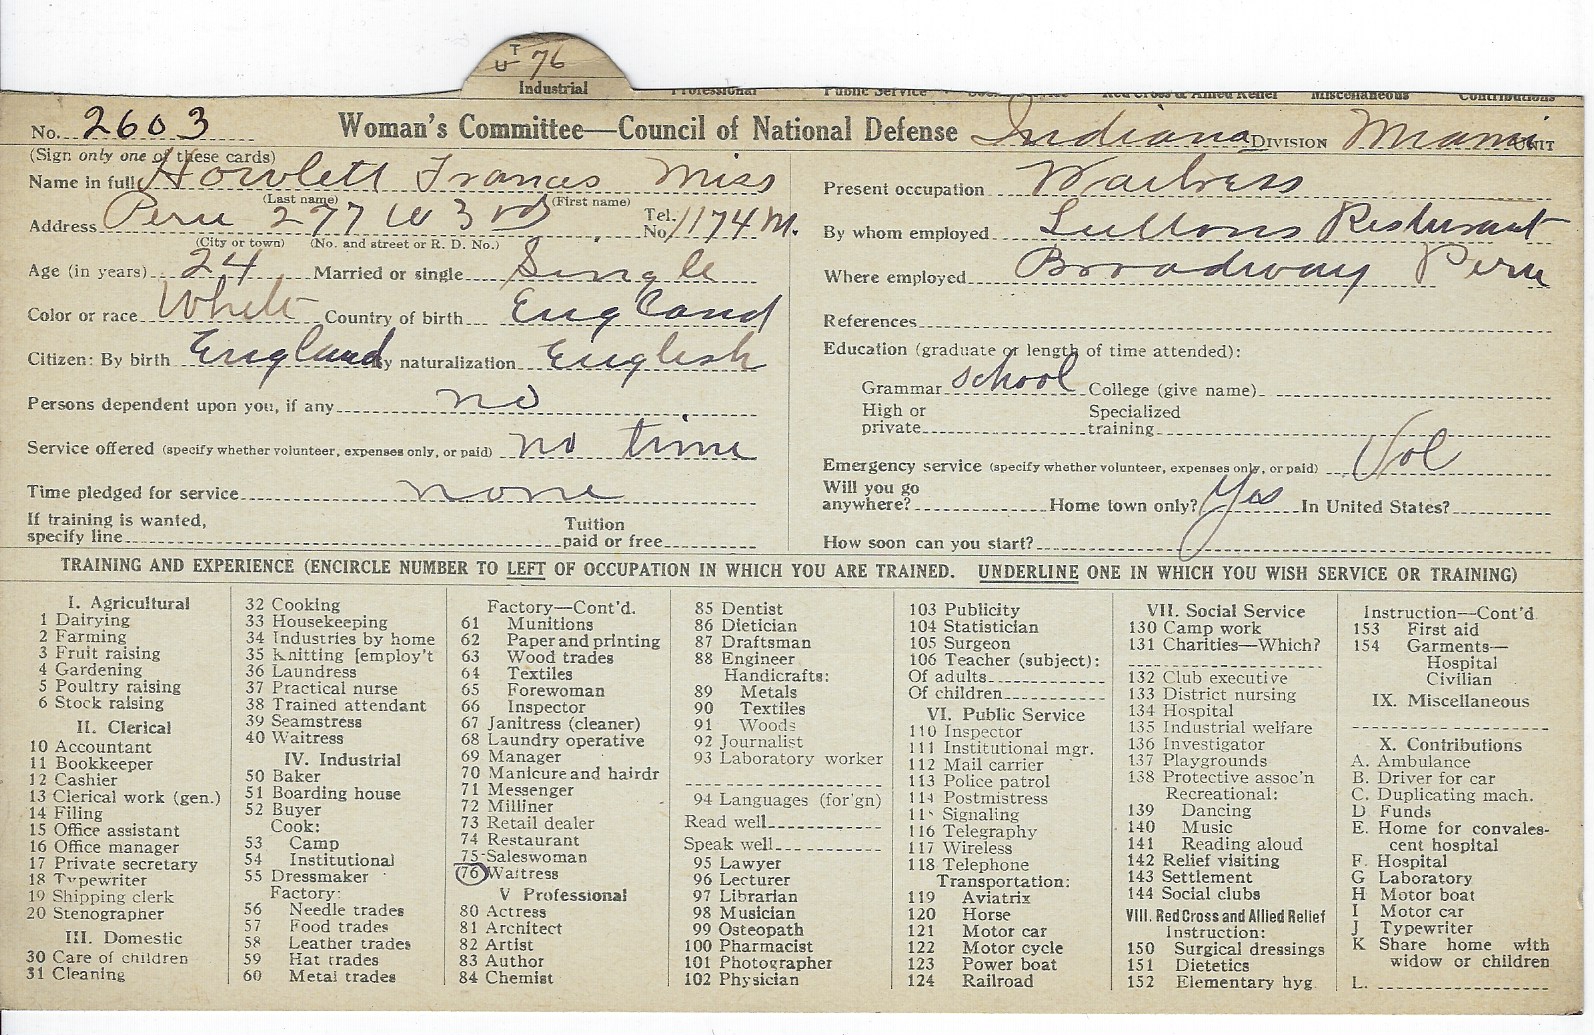 T
U 76
Industrial Professional Public Service Social Service Red Cross & Allied Relief Miscellaneous Contributions
No. 2603 Woman's Committee—Council of National Defense Indiana DIVISION Miami UNIT
(Sign only one of these cards)
Name in full Howlett Frances Miss
(Last name) (First name)
Address Peru 277 W 3rd Tel. No. 1174 M.
(City or town) (No. and street or R. D. No.)
Age (in years) 24 Married or single Single
Color or race White Country of birth England
Citizen: By birth England By naturalization English
Persons dependent upon you, if any no
Service offered (specify whether volunteer, expenses only, or paid) no time
Time pledged for service none
If training is wanted, specify line Tuition paid or free
Present occupation Waitress
By whom employed Resturant
Where employed Broadway Peru
References
Education (graduate or length of time attended):
Grammar school College (give name)
High or private Specialized training
Emergency service (specify whether volunteer, expenses only, or paid) Vol
Will you go anywhere? Home town only? Yes In United States?
How soon can you start?
TRAINING AND EXPERIENCE (ENCIRCLE NUMBER TO LEFT OF OCCUPATION IN WHICH YOU ARE TRAINED. UNDERLINE ONE IN WHICH YOU WISH SERVICE OR TRAINING)
I. Agricultural
1 Dairying
2 Farming
3 Fruit raising
4 Gardening
5 Poultry raising
6 Stock raising
II. Clerical
10 Accountant
11 Bookkeeper
12 Cashier
13 Clerical work (gen.)
14 Filing
15 Office assistant
16 Office manager
17 Private secretary
18 Typewriter
19 Shipping clerk
20 Stenographer
III. Domestic
30 Care of children
31 Cleaning
32 Cooking
33 Housekeeping
34 Industries by home
35 Knitting [employ't
36 Laundress
37 Practical nurse
38 Trained attendant
39 Seamstress
40 Waitress
IV. Industrial
50 Baker
51 Boarding house
52 Buyer
Cook:
53 Camp
54 Institutional
55 Dressmaker
Factory:
56 Needle trades
57 Food trades
58 Leather trades
59 Hat trades
60 Metal trades
Factory—Cont'd.
61 Munitions
62 Paper and printing
63 Wood trades
64 Textiles
65 Forewoman
66 Inspector
67 Janitress (cleaner)
68 Laundry operative
69 Manager
70 Manicure and hairdr
71 Messenger
72 Milliner
73 Retail dealer
74 Restaurant
75 Saleswoman
76 Waitress
V Professional
80 Actress
81 Architect
82 Artist
83 Author
84 Chemist
85 Dentist
86 Dietician
87 Draftsman
88 Engineer
Handicrafts:
89 Metals
90 Textiles
91 Woods
92 Journalist
93 Laboratory worker
94 Languages (for'gn)
Read well
Speak well
95 Lawyer
96 Lecturer
97 Librarian
98 Musician
99 Osteopath
100 Pharmacist
101 Photographer
102 Physician
103 Publicity
104 Statistician
105 Surgeon
106 Teacher (subject):
Of adults
Of children
VI. Public Service
110 Inspector
111 Institutional mgr.
112 Mail carrier
113 Police patrol
114 Postmistress
115 Signaling
116 Telegraphy
117 Wireless
118 Telephone
Transportation:
119 Aviatrix
120 Horse
121 Motor car
122 Motor cycle
123 Power boat
124 Railroad
VII. Social Service
130 Camp work
131 Charities—Which?
132 Club executive
133 District nursing
134 Hospital
135 Industrial welfare
136 Investigator
137 Playgrounds
138 Protective assoc'n
Recreational:
139 Dancing
140 Music
141 Reading aloud
142 Relief visiting
143 Settlement
144 Social clubs
VIII. Red Cross and Allied Relief
Instruction:
150 Surgical dressings
151 Dietetics
152 Elementary hyg
Instruction—Cont'd
153 First aid
154 Garments—
Hospital
Civilian
IX. Miscellaneous
X. Contributions
A. Ambulance
B. Driver for car
C. Duplicating mach.
D Funds
E. Home for convales-
cent hospital
F. Hospital
G Laboratory
H Motor boat
I Motor car
J Typewriter
K Share home with
widow or children
L.